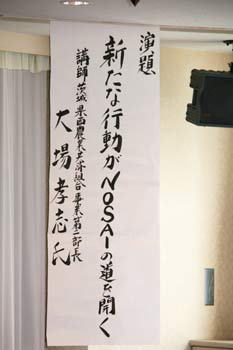 演題
新たな行動がNOSAIの道を開く
講師 茨城県西農業共済組合事業第二部長
大場孝志氏